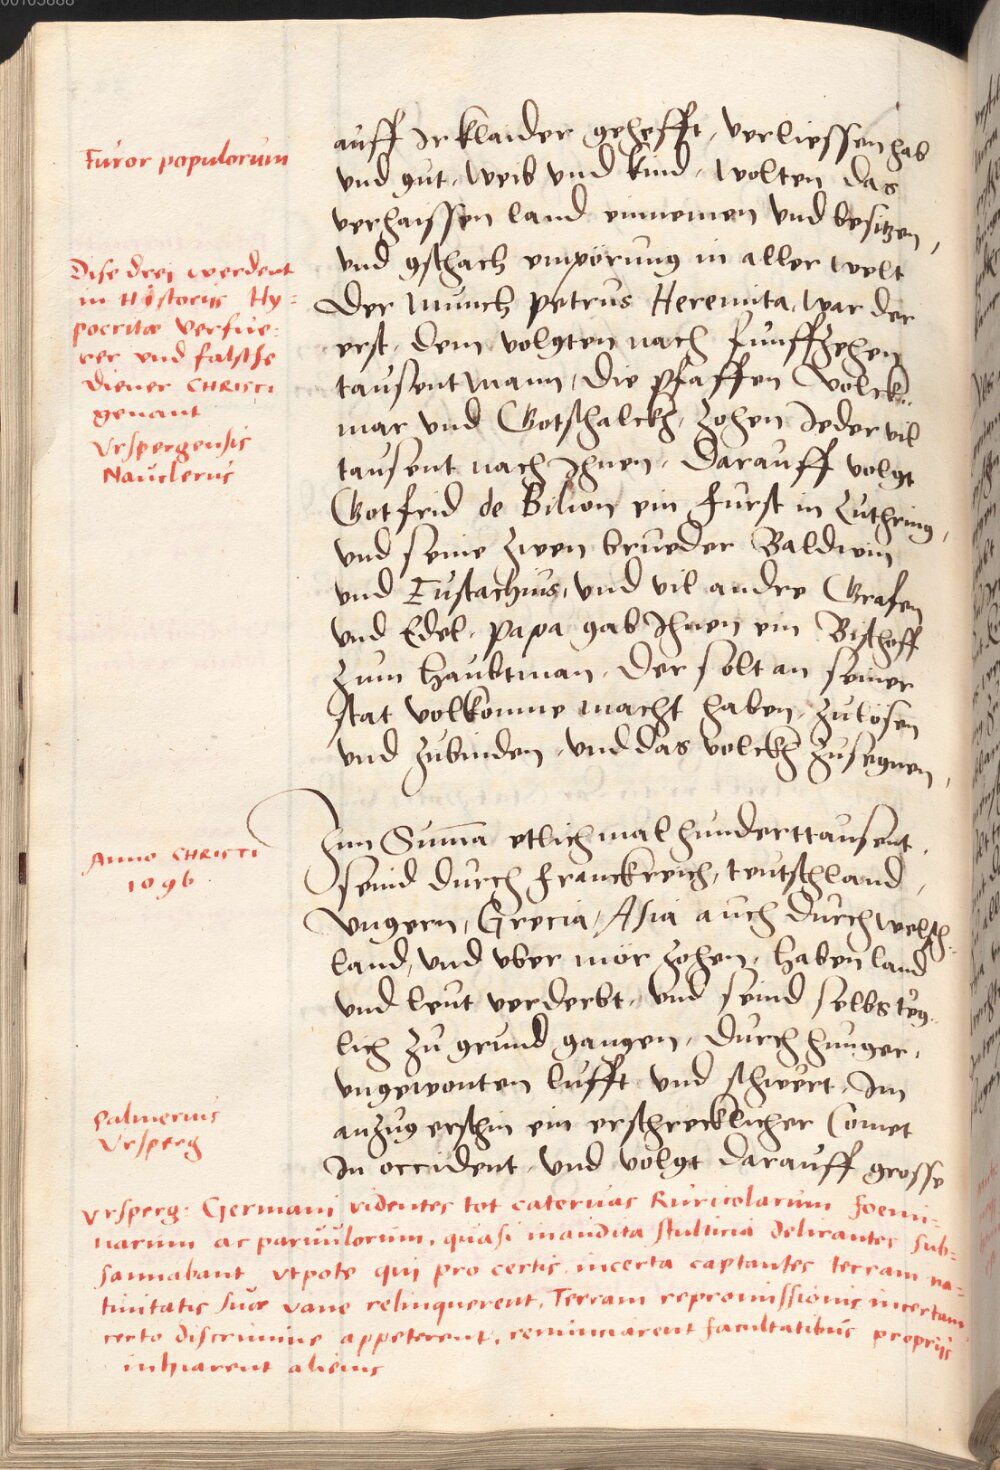 00105888
Furor populorum
Dise drei werdent
in Historijs Hy=
pocritæ verfüe=
rer vnd falsche
diener CHRISTI
genant
Vrspergensis
Nauclerus
auff Ir klaider gehefft, verliessen hab
vnd gut, weib vnd kind, wolten das
verhaissen land einnemen vnd besitzen,
vnd gschach empörung in aller welt
Der Munch Petrus Heremita, war der
erst, dem volgten nach funffzehen
tausent mann, Die pfaffen Volck=
mar vnd Gotschalckh, zohen Jeder vil
tausent nach Ihnen, Darauff volgt
Gotfrid de Bilion ein Furst in Luthring,
vnd seine zwen brueder Baldwin
vnd Eustachius, vnd vil andre Grafen
vnd Edel, Papa gab Ihnen ein Bischoff
zum haubtman, Der solt an seiner
stat volkomne macht haben, zulösen
vnd zubinden, vnd das volckh zusegnen,
Anno CHRISTI
1096
Inn Suma etlich mal hunderttausent,
seind durch Franckreich, teutschland,
Vngern, Grecia, Asia auch durch welsch=
land, vnd vber mör zohen, haben land
vnd leut verderbt, vnd seind selbs teg=
lich zu grund gangen, Durch hunger,
vngewonten lufft vnd schwert, Im
anzug erschin ein erschrecklicher Comet
In occident, vnd volgt darauff grosse
Palmerius
Vrsperg
Vrsperg: Germani videntes tot cateruas Ruricolarum foemi=
narum ac paruulorum, quasi inaudita stulticia delirantes sub=
sannabant, vtpote qui pro certis, incerta captantes terram na=
tiuitatis suæ vane relinquerent, Terram repromissionis incertam
certo discrimine appeterent, renunciarent facultatibus proprijs
inhiarent alienis